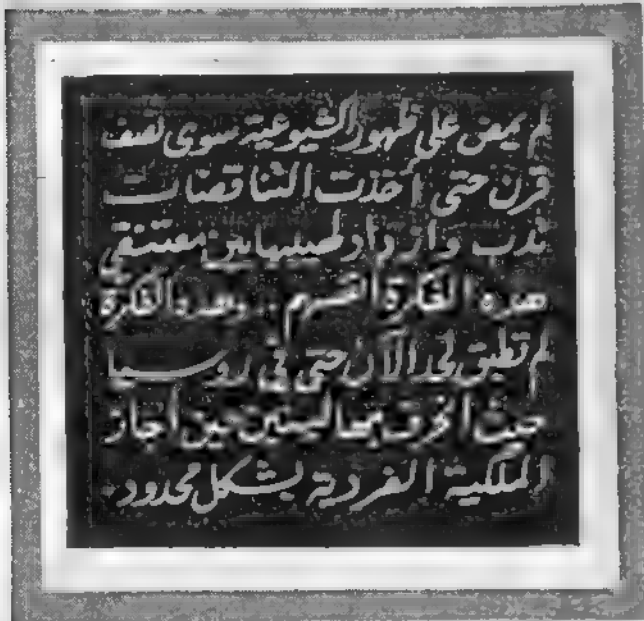 لم يمض على ظهور الشيوعية سوى نصف
قرن حتى أخذت التناقضات
تدب وازداد لهيبها بين معتنقي
هذه الفكرة انفسهم .. وهذه الفكرة
لم تطبق لحد الآن حتى في روسيا
حيث انحرف بها لينين حين اجاز
الملكية الفردية بشكل محدود .